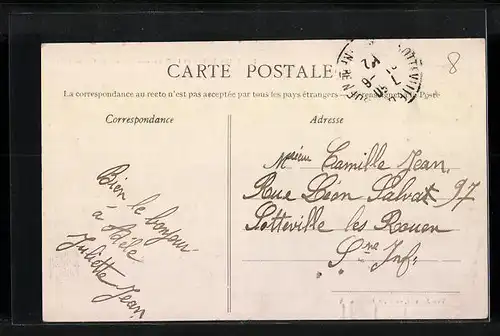 CARTE POSTALE
La correspondance au recto n'est pas acceptée par tous les pays étrangers
Poste
8
SOTTEVILLE
Correspondance
Adresse
Bien le bonjour
à Adèle
Juliette Jean
Camille Jean,
Rue Léon Salvat 97
Sotteville les Rouen
Sne Inf: